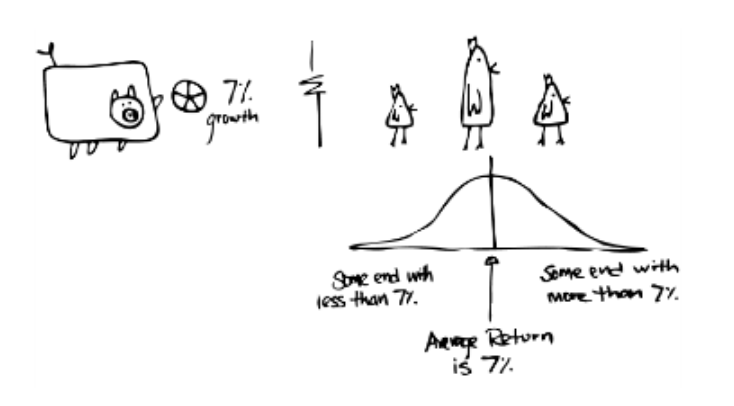 7%
growth
Some end with
less than 7%.
Some end with
more than 7%.
Average Return
is 7%.